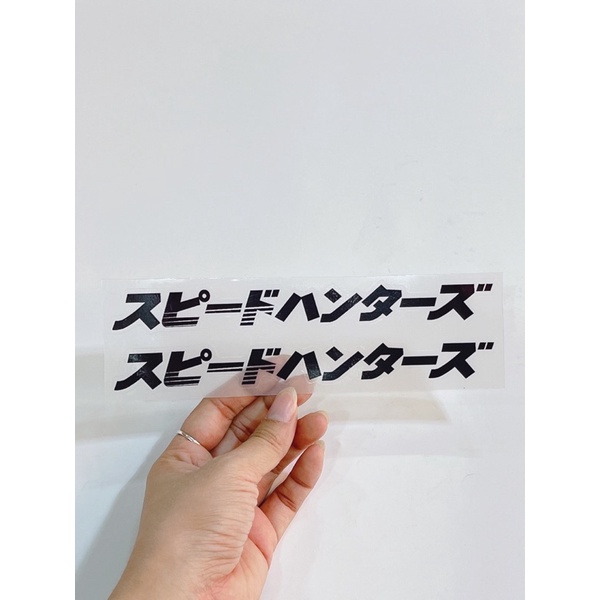 スピードハンターズ
スピードハンターズ